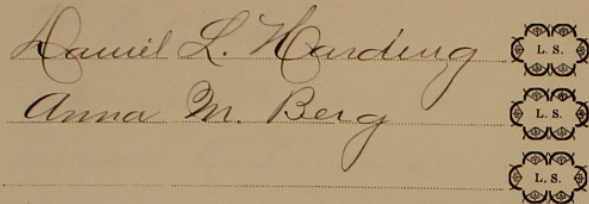 Daniel L. Harding L. S.
Anna M. Berg L. S.
L. S.